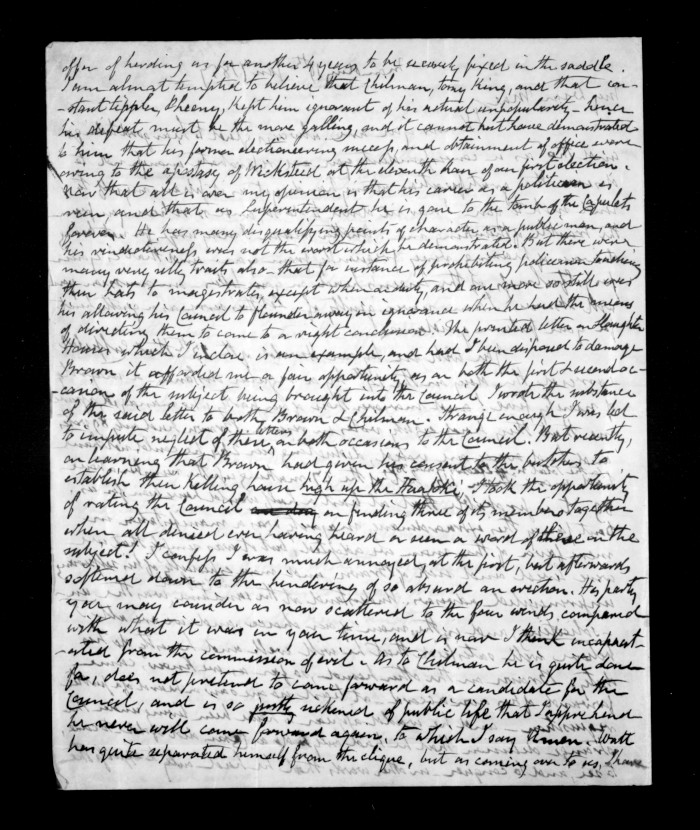 offer of herding us for another 4 years to be securely fixed in the saddle.
I am almost tempted to believe that Chilman, tony King, and that con-
-stant tippler Sheeney, kept him ignorant of his actual unpopularity - hence
his defeat must be the more galling, and it cannot but have demonstrated
to him that his former electioneering success, and obtainment of office were
owing to the apostasy of Wicksteed at the eleventh hour of our first election.
Now that all is over my opinion is that his carrier as a politician is
run and that as Superintendent he is gone to the tomb of the Capulets
forever. He has many disqualifying points of character as a public man, and
his vindictiveness was not the worst which he demonstrated. But there were
many very silly traits also - that for instance of prohibiting policemen touching
their hats to magistrates, except when on duty, and one more so still was
his allowing his Council to flounder away in ignorance when he had the means
of directing them to come to a right conclusion. The printed letter on Slaughter
Houses which I inclose is an example, and had I been disposed to damage
Brown it afforded me a fair opportunity, as on both the first & second oc-
-casion of the subject being brought into the Council I wrote the substance
of the said letter to both Brown & Chilman. Strange enough I was led
to impute neglect of these letters on both occasions to the Council. But recently,
on learning that Brown had given his consent to the butchers to
establish their killing house high up the Huatoki, I took the opportunity
of rating the Council on finding three of its members together
when all denied ever having heard or seen a word of these on the
subject! I confess I was much annoyed at the first, but afterwards
softened down to the hindering of so absurd an erection. His party
you may consider as now scattered to the four winds, compared
with what it was in your time, and is now I think incapacit-
-ated from the commission of evil. As to Chilman he is quite done
for, does not pretend to come forward as a candidate for the
Council, and is so justly sickened of public life that I apprehend
he never will come forward again, to which I say Amen. Watt
has quite separated himself from the clique, but as coming over to us, I have